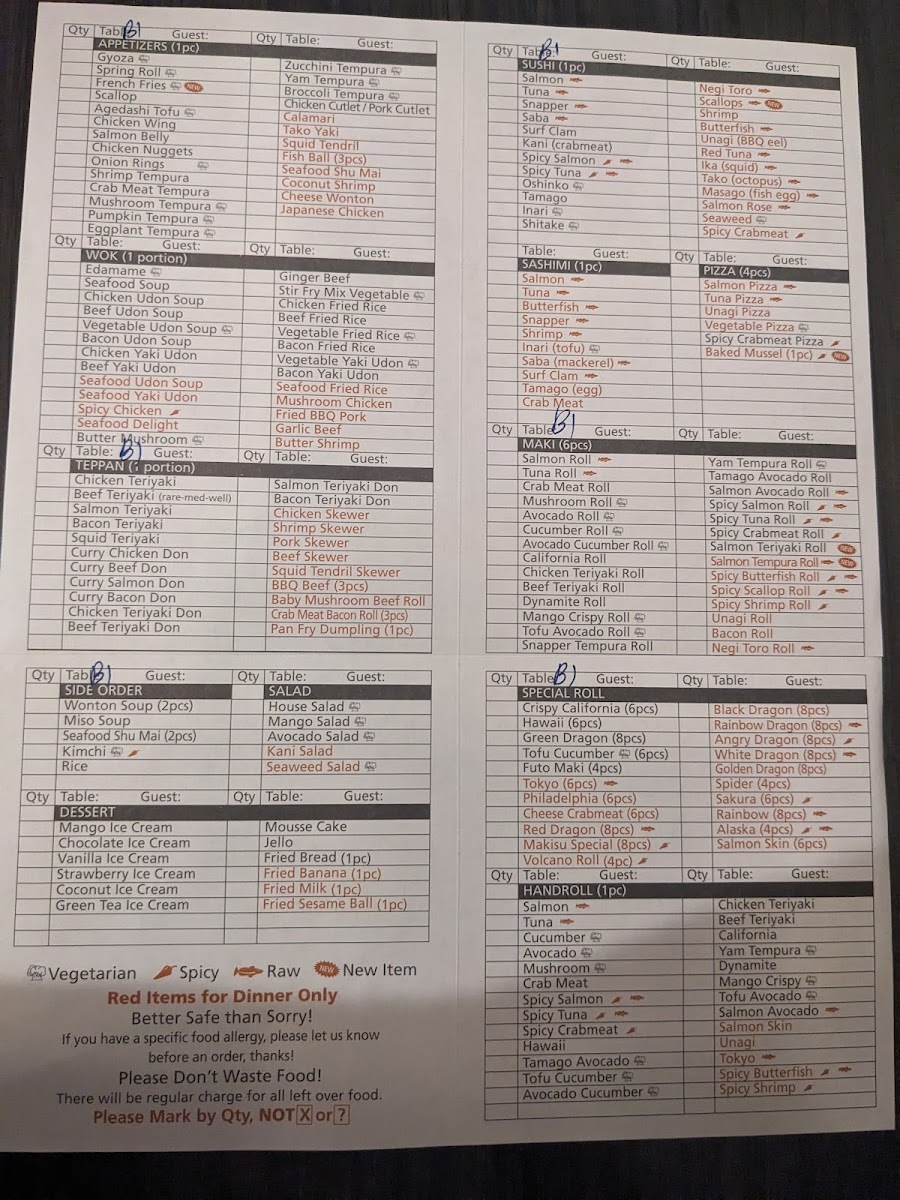 Qty Table: B1 Guest: Qty Table: Guest:
APPETIZERS (1pc)
Gyoza
Spring Roll
French Fries NEW
Scallop
Agedashi Tofu
Chicken Wing
Salmon Belly
Chicken Nuggets
Onion Rings
Shrimp Tempura
Crab Meat Tempura
Mushroom Tempura
Pumpkin Tempura
Eggplant Tempura
Zucchini Tempura
Yam Tempura
Broccoli Tempura
Chicken Cutlet / Pork Cutlet
Calamari
Tako Yaki
Squid Tendril
Fish Ball (3pcs)
Seafood Shu Mai
Coconut Shrimp
Cheese Wonton
Japanese Chicken
Qty Table: Guest: Qty Table: Guest:
WOK (1 portion)
Edamame
Seafood Soup
Chicken Udon Soup
Beef Udon Soup
Vegetable Udon Soup
Bacon Udon Soup
Chicken Yaki Udon
Beef Yaki Udon
Seafood Udon Soup
Seafood Yaki Udon
Spicy Chicken
Seafood Delight
Butter Mushroom
Ginger Beef
Stir Fry Mix Vegetable
Chicken Fried Rice
Beef Fried Rice
Vegetable Fried Rice
Bacon Fried Rice
Vegetable Yaki Udon
Bacon Yaki Udon
Seafood Fried Rice
Mushroom Chicken
Fried BBQ Pork
Garlic Beef
Butter Shrimp
Qty Table: B1 Guest: Qty Table: Guest:
TEPPAN (1 portion)
Chicken Teriyaki
Beef Teriyaki (rare-med-well)
Salmon Teriyaki
Bacon Teriyaki
Squid Teriyaki
Curry Chicken Don
Curry Beef Don
Curry Salmon Don
Curry Bacon Don
Chicken Teriyaki Don
Beef Teriyaki Don
Salmon Teriyaki Don
Bacon Teriyaki Don
Chicken Skewer
Shrimp Skewer
Pork Skewer
Beef Skewer
Squid Tendril Skewer
BBQ Beef (3pcs)
Baby Mushroom Beef Roll
Crab Meat Bacon Roll (3pcs)
Pan Fry Dumpling (1pc)
Qty Table: B1 Guest: Qty Table: Guest:
SIDE ORDER
Wonton Soup (2pcs)
Miso Soup
Seafood Shu Mai (2pcs)
Kimchi
Rice
SALAD
House Salad
Mango Salad
Avocado Salad
Kani Salad
Seaweed Salad
Qty Table: Guest: Qty Table: Guest:
DESSERT
Mango Ice Cream
Chocolate Ice Cream
Vanilla Ice Cream
Strawberry Ice Cream
Coconut Ice Cream
Green Tea Ice Cream
Mousse Cake
Jello
Fried Bread (1pc)
Fried Banana (1pc)
Fried Milk (1pc)
Fried Sesame Ball (1pc)
Vegetarian Spicy Raw NEW New Item
Red Items for Dinner Only
Better Safe than Sorry!
If you have a specific food allergy, please let us know
before an order, thanks!
Please Don't Waste Food!
There will be regular charge for all left over food.
Please Mark by Qty, NOT X or ?
Qty Table: B1 Guest: Qty Table: Guest:
SUSHI (1pc)
Salmon
Tuna
Snapper
Saba
Surf Clam
Kani (crabmeat)
Spicy Salmon
Spicy Tuna
Oshinko
Tamago
Inari
Shitake
Negi Toro
Scallops NEW
Shrimp
Butterfish
Unagi (BBQ eel)
Red Tuna
Ika (squid)
Tako (octopus)
Masago (fish egg)
Salmon Rose
Seaweed
Spicy Crabmeat
Table: Guest: Qty Table: Guest:
SASHIMI (1pc)
Salmon
Tuna
Butterfish
Snapper
Shrimp
Inari (tofu)
Saba (mackerel)
Surf Clam
Tamago (egg)
Crab Meat
PIZZA (4pcs)
Salmon Pizza
Tuna Pizza
Unagi Pizza
Vegetable Pizza
Spicy Crabmeat Pizza
Baked Mussel (1pc) NEW
Qty Table: B1 Guest: Qty Table: Guest:
MAKI (6pcs)
Salmon Roll
Tuna Roll
Crab Meat Roll
Mushroom Roll
Avocado Roll
Cucumber Roll
Avocado Cucumber Roll
California Roll
Chicken Teriyaki Roll
Beef Teriyaki Roll
Dynamite Roll
Mango Crispy Roll
Tofu Avocado Roll
Snapper Tempura Roll
Yam Tempura Roll
Tamago Avocado Roll
Salmon Avocado Roll
Spicy Salmon Roll
Spicy Tuna Roll
Spicy Crabmeat Roll
Salmon Teriyaki Roll NEW
Salmon Tempura Roll NEW
Spicy Butterfish Roll
Spicy Scallop Roll
Spicy Shrimp Roll
Unagi Roll
Bacon Roll
Negi Toro Roll
Qty Table: B1 Guest: Qty Table: Guest:
SPECIAL ROLL
Crispy California (6pcs)
Hawaii (6pcs)
Green Dragon (8pcs)
Tofu Cucumber (6pcs)
Futo Maki (4pcs)
Tokyo (6pcs)
Philadelphia (6pcs)
Cheese Crabmeat (6pcs)
Red Dragon (8pcs)
Makisu Special (8pcs)
Volcano Roll (4pc)
Black Dragon (8pcs)
Rainbow Dragon (8pcs)
Angry Dragon (8pcs)
White Dragon (8pcs)
Golden Dragon (8pcs)
Spider (4pcs)
Sakura (6pcs)
Rainbow (8pcs)
Alaska (4pcs)
Salmon Skin (6pcs)
Qty Table: Guest: Qty Table: Guest:
HANDROLL (1pc)
Salmon
Tuna
Cucumber
Avocado
Mushroom
Crab Meat
Spicy Salmon
Spicy Tuna
Spicy Crabmeat
Hawaii
Tamago Avocado
Tofu Cucumber
Avocado Cucumber
Chicken Teriyaki
Beef Teriyaki
California
Yam Tempura
Dynamite
Mango Crispy
Tofu Avocado
Salmon Avocado
Salmon Skin
Unagi
Tokyo
Spicy Butterfish
Spicy Shrimp